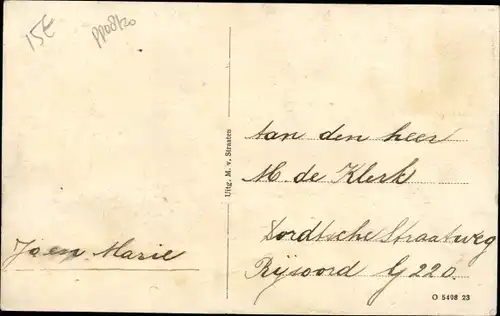 15€
pp08120
Uitg. M. v. Straaten
Aan den heer
M. de Klerk
Dordtsche Straatweg
Rijsoord G 220.
Ja en Marie
O 5498 23